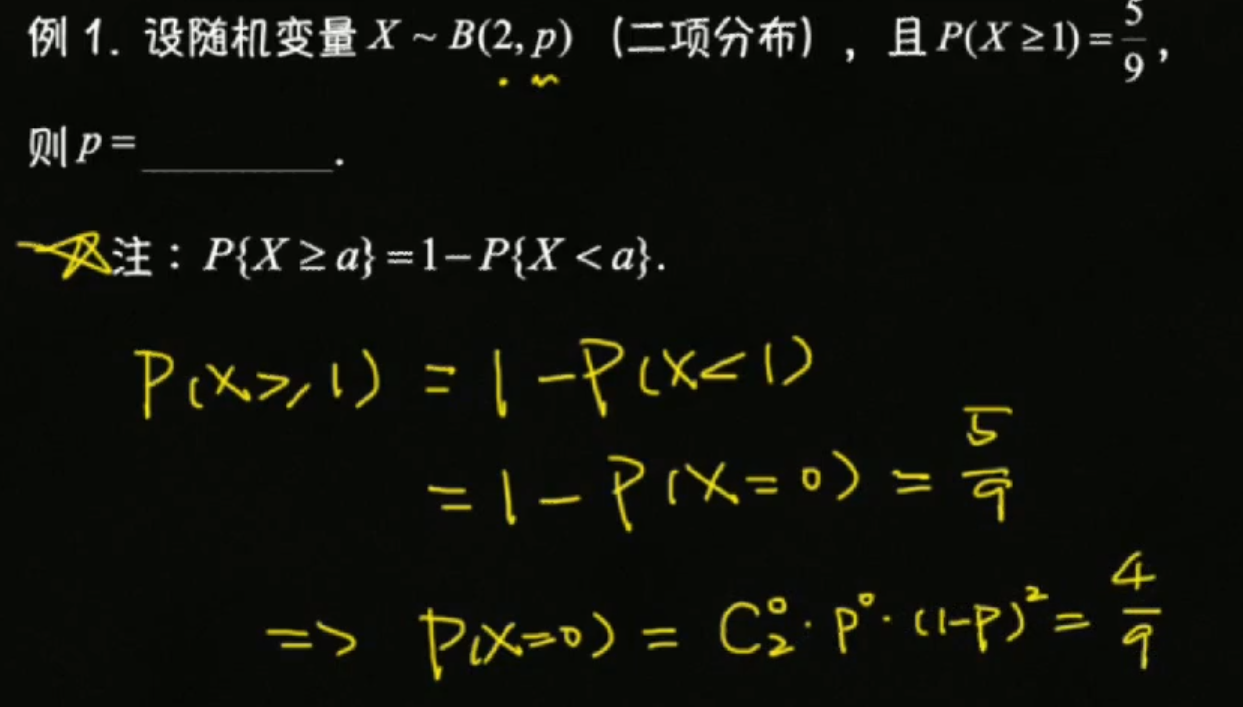 例 1. 设随机变量 X ~ B(2, p) (二项分布), 且 P(X ≥ 1) = 5/9,
则 p = __________.
注: P{X ≥ a} = 1 − P{X < a}.
P(X ≥ 1) = 1 − P(X < 1)
= 1 − P(X = 0) = 5/9
=> P(X=0) = C₂⁰ · p⁰ · (1−p)² = 4/9